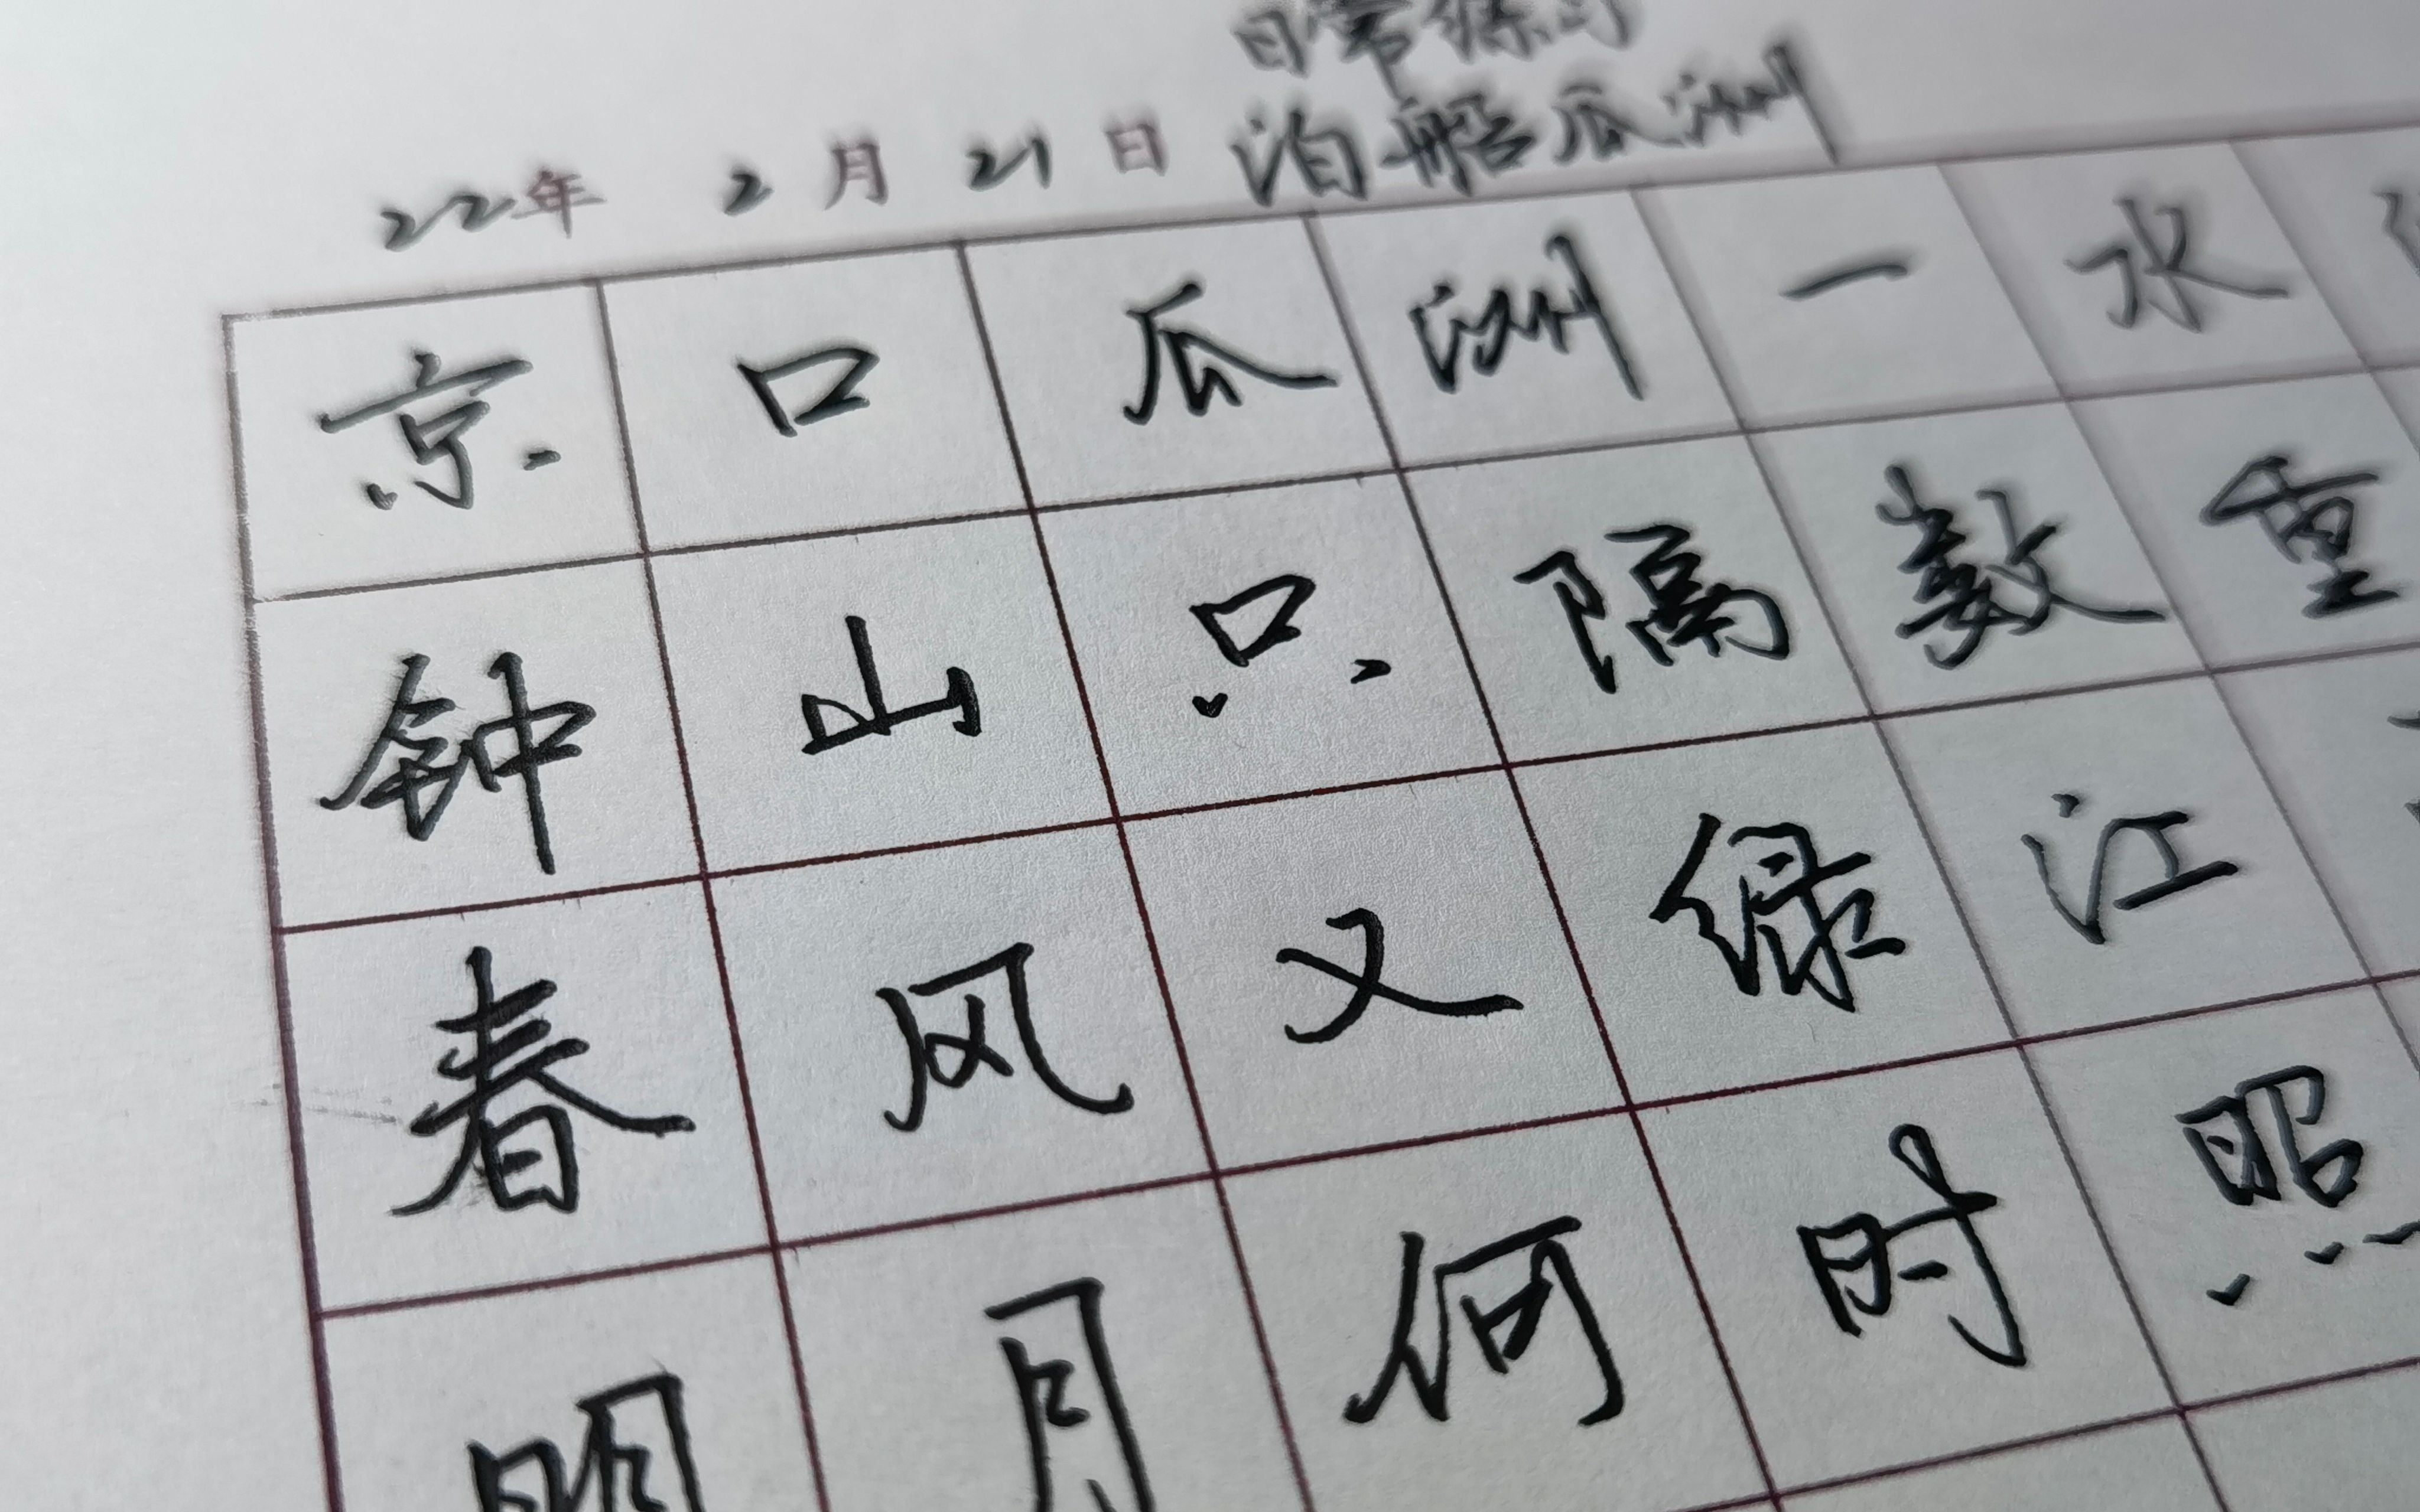 日常练习
22年 2月 21日 泊船瓜洲
京口瓜洲一水
钟山只隔数重
春风又绿江
明月何时照